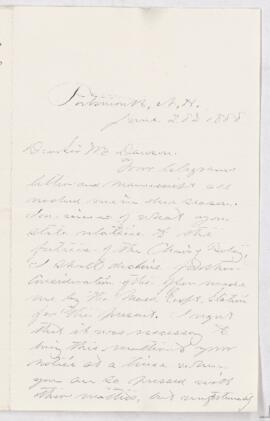 Portsmouth, N.H.
June 28th 1888
Dear Sir Mr Dawson.
Your telegram
letter and manuscript all
reached me in due season.
In view of what you
state relative to the
future of the Chair of Botany,
I shall decline further
consideration of the offer made
me by the Mass. Expt. Station
for the present. I regret
that it was necessary to
bring this matter to your
notice at a time when
you are so pressed with
other matters, but unfortunately